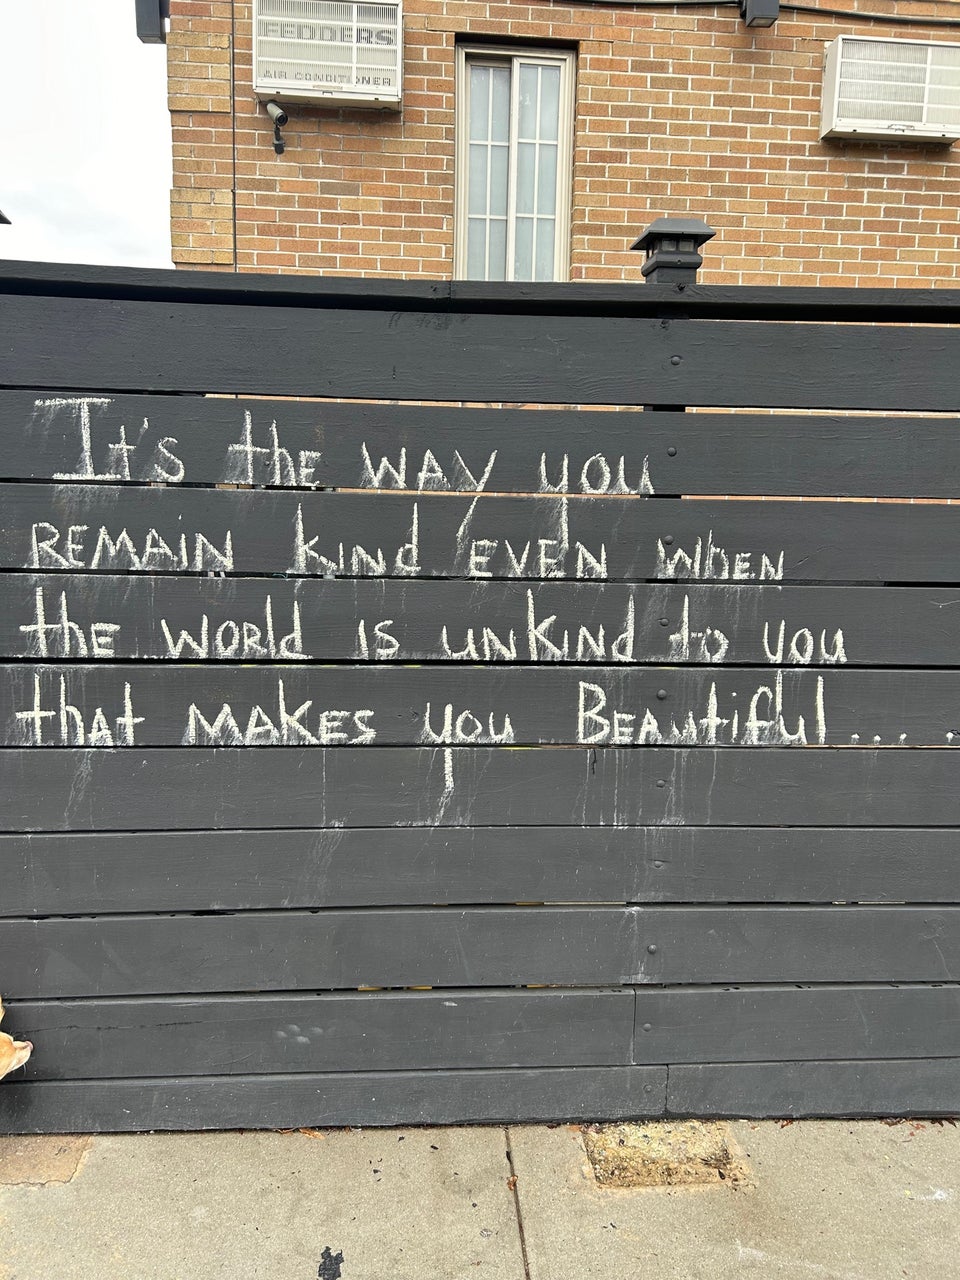 FEDDERS
AIR CONDITIONER
It's the WAY you
REMAIN kINd EVEN WhEN
the WORld IS UNKINd to you
thAt MAkES you BEAutiful....